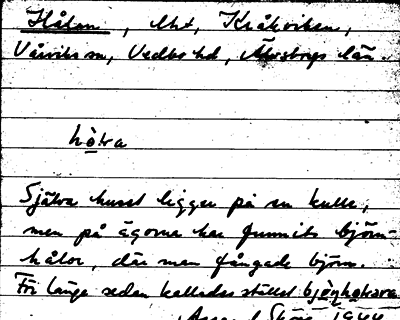 Hålan, lht, Kråkviken,
Vårviks sn, Vedbo hd, Älvsborgs län.
hòla
Själva huset ligger på en kulle,
men på ägorna har funnits björn-
hålor, där man fångade björn.
För länge sedan kallades stället
1944